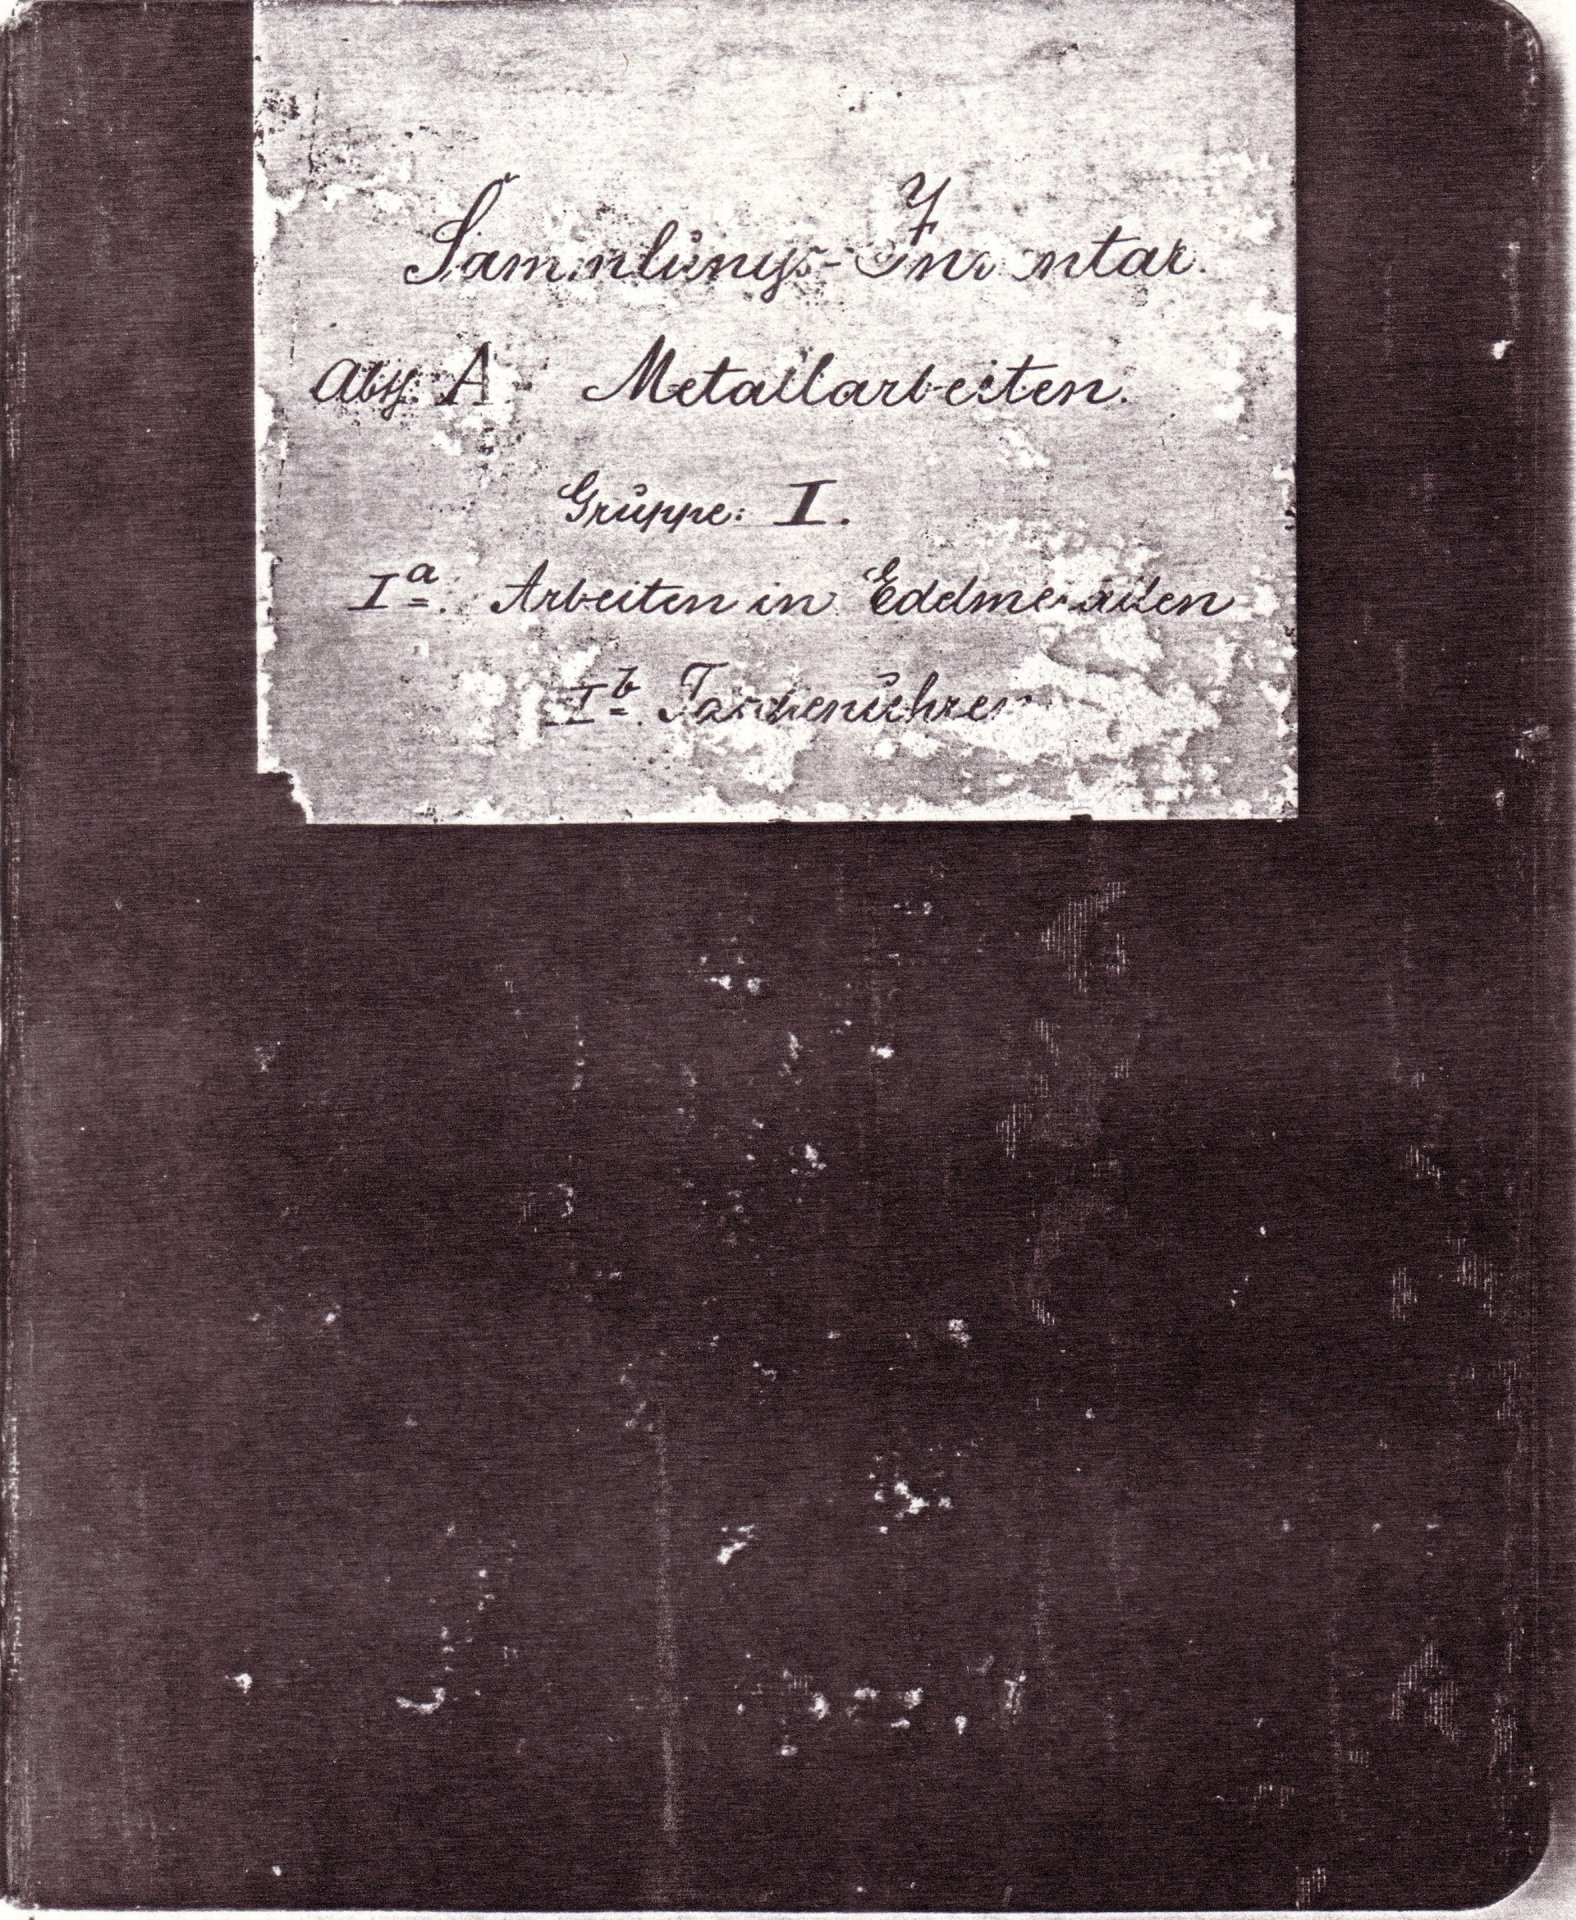 Sammlungs-Inventar.
Abtg. A Metallarbeiten.
Gruppe: I.
Ia. Arbeiten in Edelmetallen
Ib. Taschenuhren